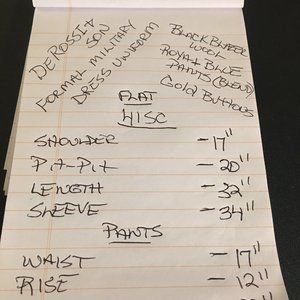 DEROSSI +
SON
FORMAL MILITARY
DRESS UNIFORM
BLACK BLAZER
WOOL
ROYAL BLUE
PANTS (BLEND)
GOLD BUTTONS
FLAT
41SC
SHOULDER - 17"
PIT-PIT - 20"
LENGTH - 32"
SLEEVE - 34"
PANTS
WAIST - 17"
RISE - 12"